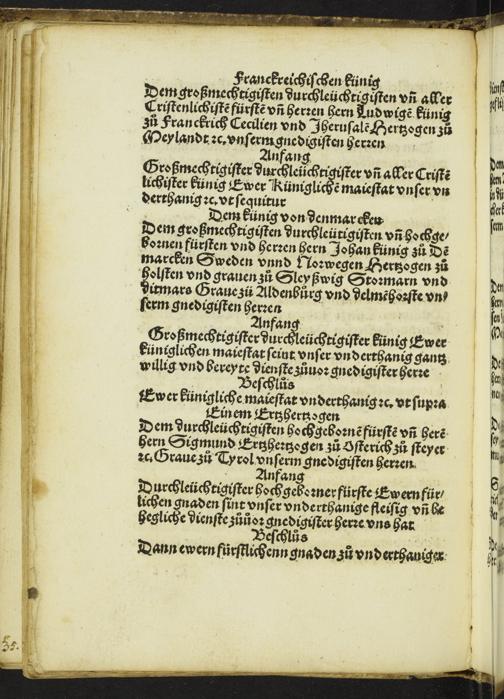 Franckreichischen künig
Dem großmechtigisten durchleüchtigisten vñ aller
Cristenlichistē fürstē vñ herren hern Ludwigē künig
zů Franckrich Cecilien vnd Jherusalē Hertzogen zů
Meylandt ꝛc, vnserm gnedigisten herren
Anfang
Großmechtigister durchleüchtigister vñ aller Cristē
lichister künig Ewer Küniglichē maiestat vnser vn
derthanig ꝛc, vt sequitur
Dem künig von denmarcken
Dem großmechtigisten durchleütigisten vñ hochge⸗
bornen fürsten vnd herren hern Johan künig zů Dē
marcken Sweden vnnd Norwegen Hertzogen zů
holsten vnd grauen zů Sleyßwig Stormarn vnd
ditmars Graue zů Aldenbůrg vnd delmēhorste vn⸗
serm gnedigisten herren
Anfang
Großmechtigister durchleüchtigister künig Ewer
küniglichen maiestat seint vnser vnderthanig gantz
willig vnd bereyte dienste zůuor gnedigister herre
Beschlůs
Ewer künigliche maiestat vnderthanig ꝛc, vt supra
Einem Ertzhertzogen
Dem durchleüchtigisten hochgebornē fürstē vñ herē
hern Sigmund Ertzhertzogen zů Osterich zů steyer
ꝛc, Graue zů Tyrol vnserm gnedigisten herren
Anfang
Durchleüchtigister hochgeborner fürste Ewern für⸗
lichen gnaden sint vnser vnderthanige fleisig vñ be
hegliche dienste zůuor gnedigister herre vns hat
Beschlůs
Dann ewern fürstlichenn gnaden zů vnderthaniger
35.